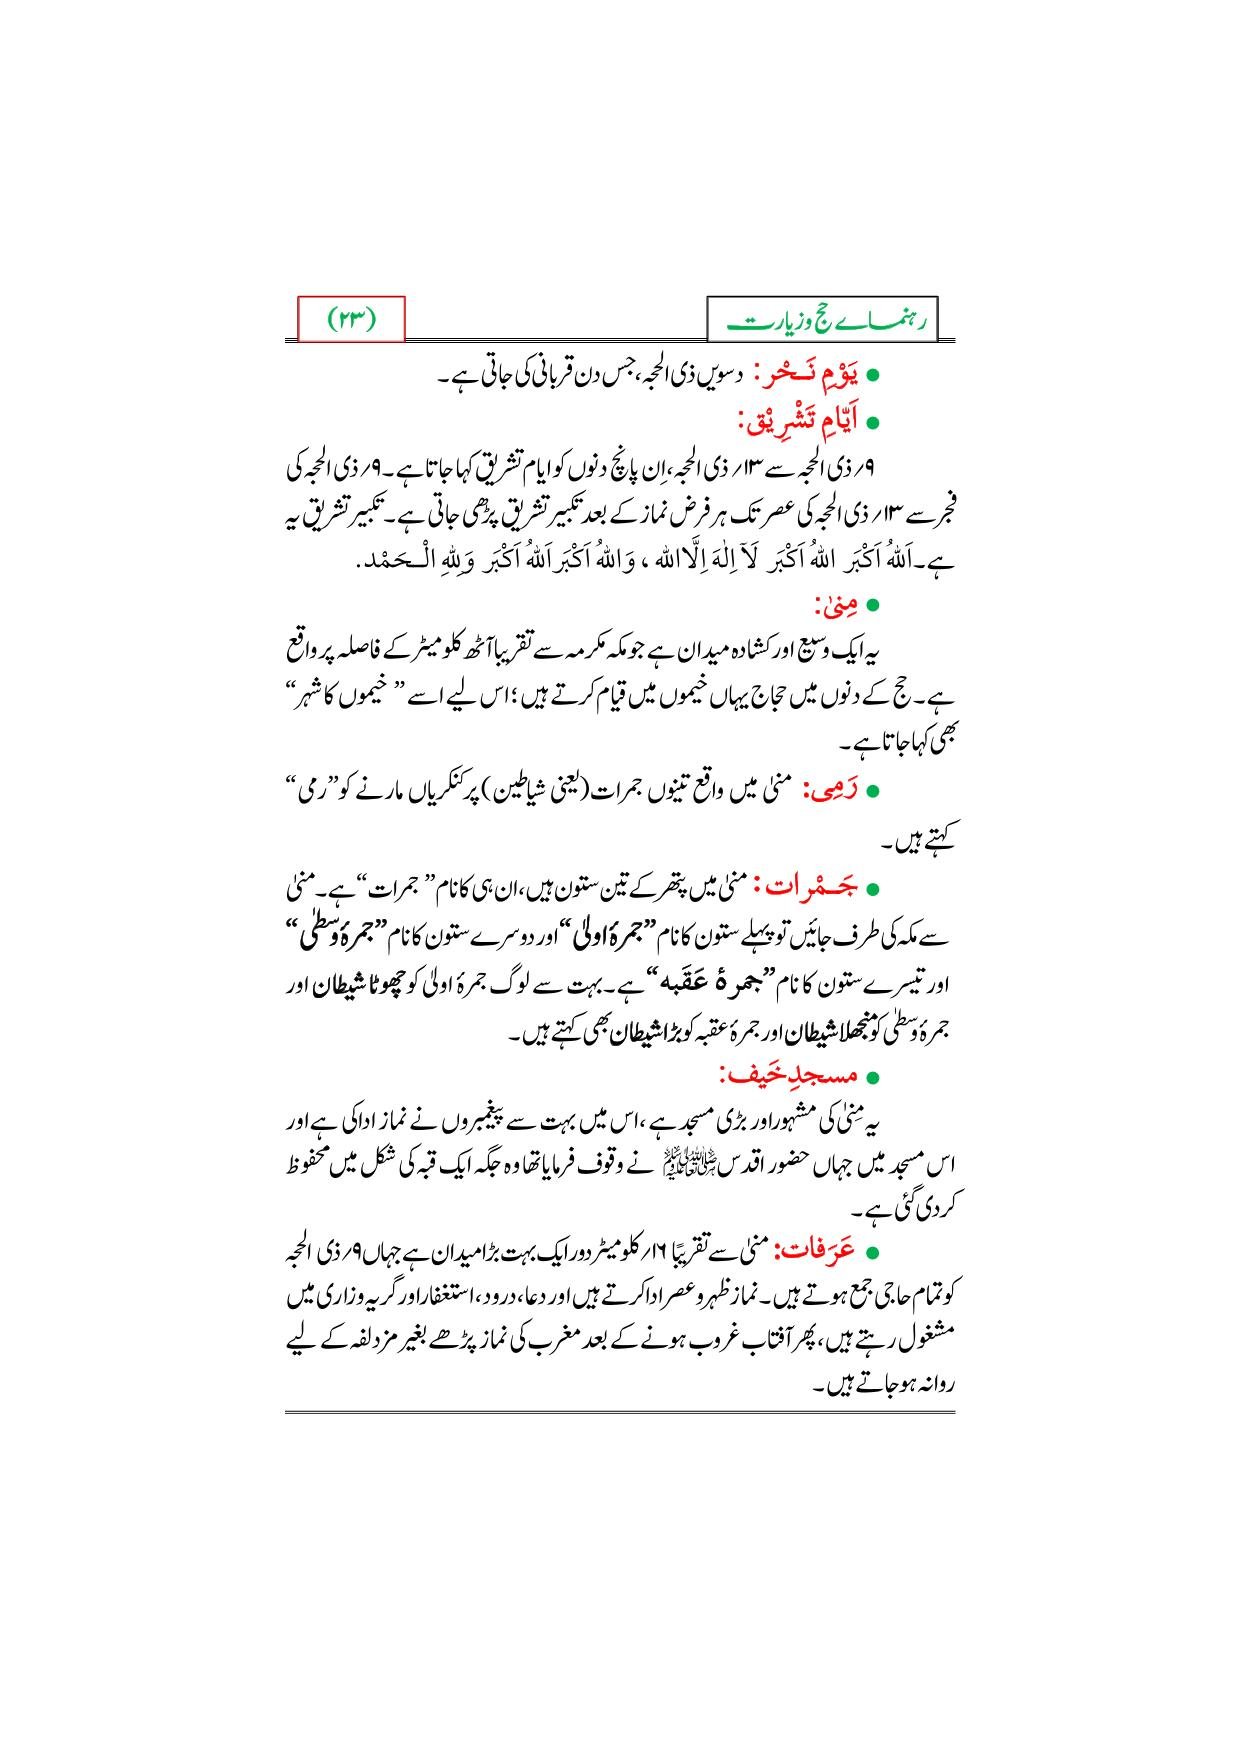 رہنماے حج وزیارت
(۲۳)
● یَوْمِ نَحْر: دسویں ذی الحجہ، جس دن قربانی کی جاتی ہے۔
● اَیَّامِ تَشْرِیْق:
۹؍ ذی الحجہ سے ۱۳؍ ذی الحجہ، اِن پانچ دنوں کو ایام تشریق کہا جاتا ہے۔ ۹؍ ذی الحجہ کی
فجر سے ۱۳؍ ذی الحجہ کی عصر تک ہر فرض نماز کے بعد تکبیر تشریق پڑھی جاتی ہے۔ تکبیر تشریق یہ
ہے۔ اَللهُ اَکْبَر اللهُ اَکْبَر لَآ اِلٰهَ اِلَّا الله ، وَاللهُ اَکْبَر اَللهُ اَکْبَر وَلِلّٰهِ الْحَمْد.
● مِنیٰ:
یہ ایک وسیع اور کشادہ میدان ہے جو مکہ مکرمہ سے تقریبا آٹھ کلو میٹر کے فاصلہ پر واقع
ہے۔ حج کے دنوں میں حجاج یہاں خیموں میں قیام کرتے ہیں؛ اس لیے اسے ”خیموں کا شہر“
بھی کہا جاتا ہے۔
● رَمِی: منیٰ میں واقع تینوں جمرات (یعنی شیاطین) پر کنکریاں مارنے کو ”رمی“
کہتے ہیں۔
● جَمْرات: منیٰ میں پتھر کے تین ستون ہیں، ان ہی کا نام ”جمرات“ ہے۔ منیٰ
سے مکہ کی طرف جائیں تو پہلے ستون کا نام ”جمرۂ اولیٰ“ اور دوسرے ستون کا نام ”جمرۂ وسطیٰ“
اور تیسرے ستون کا نام ”جمرۂ عَقَبه“ ہے۔ بہت سے لوگ جمرۂ اولیٰ کو چھوٹا شیطان اور
جمرۂ وسطیٰ کو منجھلا شیطان اور جمرۂ عقبہ کو بڑا شیطان بھی کہتے ہیں۔
● مسجدِ خَیف:
یہ مِنیٰ کی مشہور اور بڑی مسجد ہے، اس میں بہت سے پیغمبروں نے نماز ادا کی ہے اور
اس مسجد میں جہاں حضور اقدس ﷺ نے وقوف فرمایا تھا وہ جگہ ایک قبہ کی شکل میں محفوظ
کر دی گئی ہے۔
● عَرَفات: منیٰ سے تقریبًا ۱۶؍ کلو میٹر دور ایک بہت بڑا میدان ہے جہاں ۹؍ ذی الحجہ
کو تمام حاجی جمع ہوتے ہیں۔ نماز ظہر و عصر ادا کرتے ہیں اور دعا، درود، استغفار اور گریہ وزاری میں
مشغول رہتے ہیں، پھر آفتاب غروب ہونے کے بعد مغرب کی نماز پڑھے بغیر مزدلفہ کے لیے
روانہ ہو جاتے ہیں۔